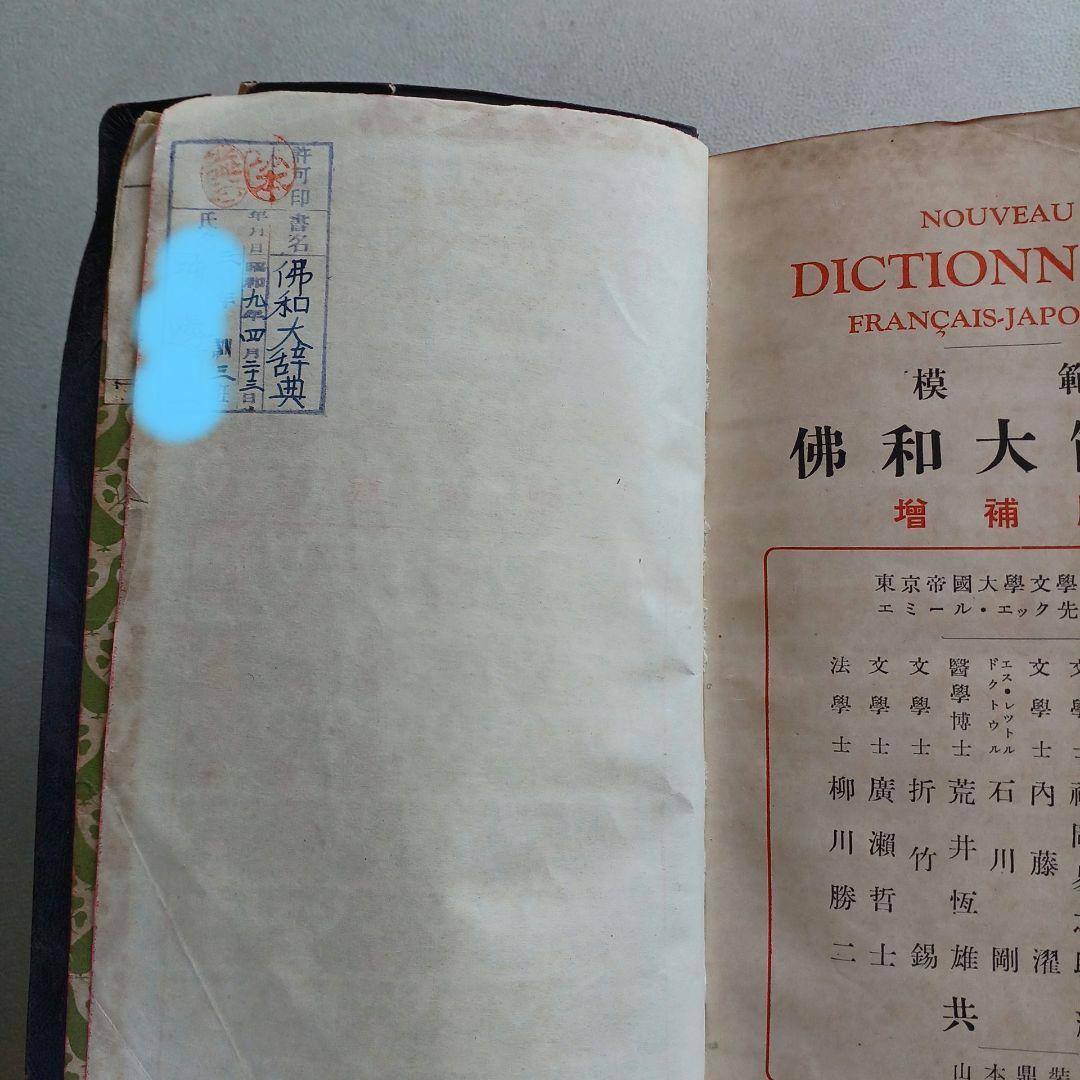 許可印
書名
佛和大辞典
年月日
昭和九年四月二十三日
氏
三
NOUVEAU
DICTIONN
FRANÇAIS-JAPO
模範
佛和大
增補
東京帝國大學文學
エミール・エック先
文學士 內藤濯
エス・レツトル
ドクトウル
石川剛
醫學博士 荒井恆雄
文學士 折竹錫
文學士 廣瀨哲士
法學士 柳川勝二
共
山本鼎裝